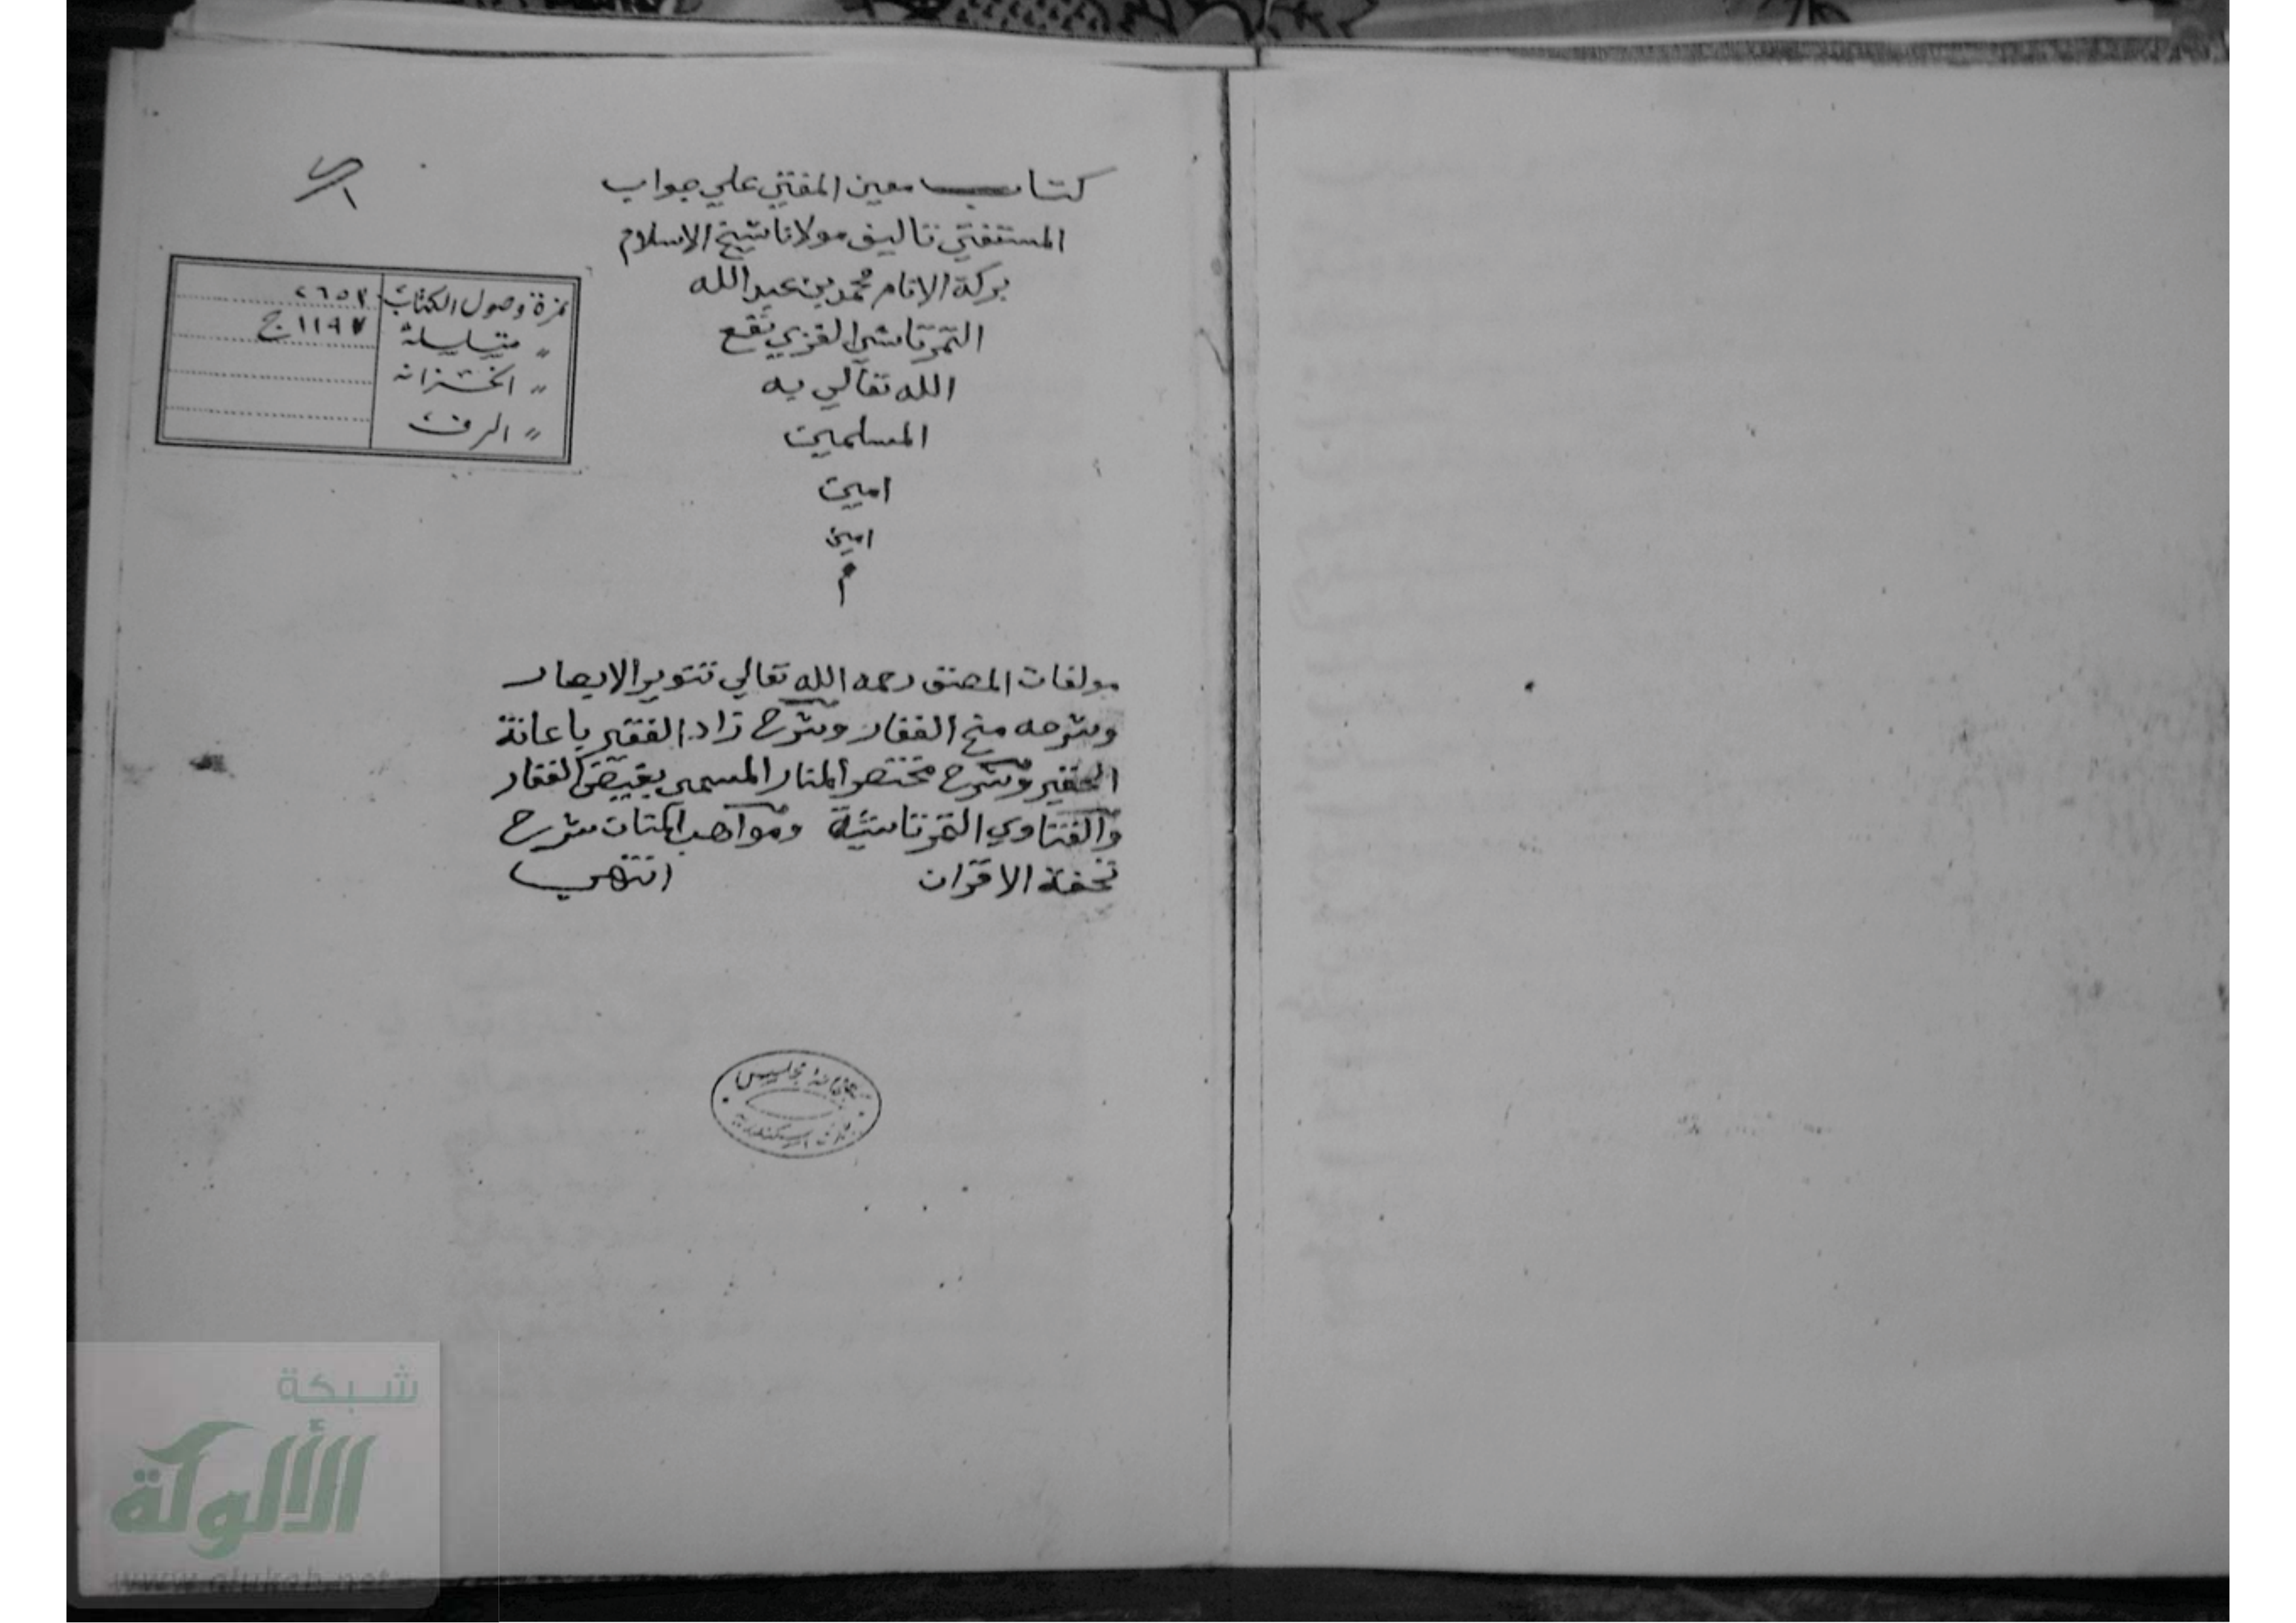 كتاب معين المفتي علي جواب
المستفتي تاليف مولانا شيخ الاسلام
بركة الانام محمد بن عبد الله
التمرتاشي الغزي نفع
الله تعالي به
المسلمين
امين
امين
م
نمرة وصول الكتاب ٢٦٥٢
〃 متسلسلة ١١٩٧ ج
〃 الخزانة
〃 الرف
مولفات المصنف رحمه الله تعالي تنوير الابصار
وشرحه منح الغفار وشرح زاد الفقير باعانة
الحقير وشرح مختصر المنار المسمى بفيض الغفار
والفتاوي التمرتاشية ومواهب المنان شرح
تحفة الاقران انتهي
مجلس
اسكندرية
شبكة
الألوكة
www.alukah.net